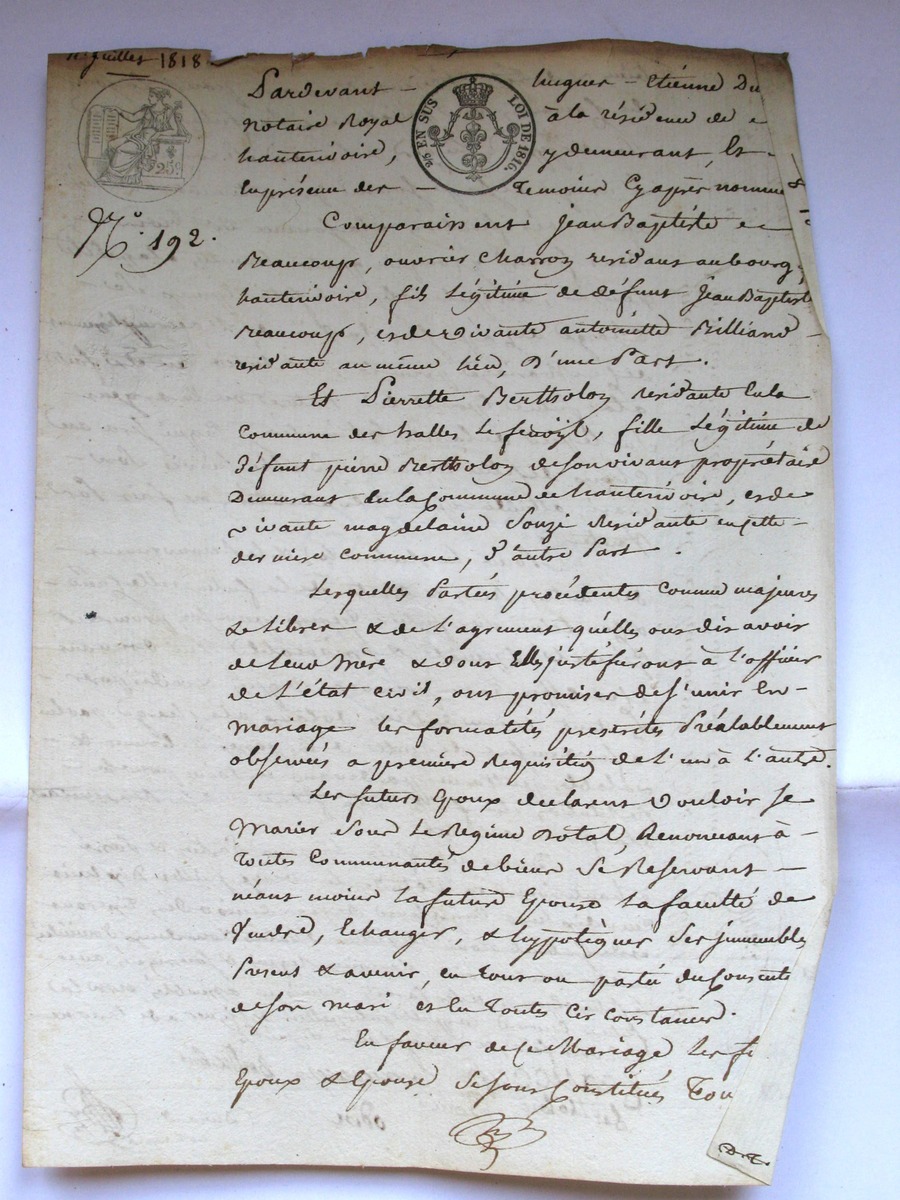 Juillet 1818
25c
EN SUS
LOI DE 1816.
N.o 192.
Pardevant - hugues - Etiénne Du
Notaire Royal à la résidence de
hauterivoire, y demeurant, Et -
En présence des - Temoins Cyaprès nommé
Comparaissent Jean Baptiste
Beaucoup, ouvrier Charron residant au bourg
hauterivoire, fils légitime de défunt Jean Baptiste
Beaucoup, et de vivante antoinette Billiand
residante au même lieu, D'une Part.
Et Pierrette Bertholon residante En la
Commune des halles Le fenoyl, fille Légitime de
Défunt pierre Bertholon de son vivant propriétaire
Demeurant En la Commune de hauterivoire, et de
vivante magdelaine Souzi Residante en cette
derniere commune, D'autre Part.
Lesquelles Partiés procédentes Comme majeures
& Libres & de L'agrement qu'elles ont dit avoir
de Leur Mère & dont Elles justifiront à L'officier
de L'état Civil, ont promises de s'unir En
Mariage les formalités prescrités Préalablement
observées a premiere Requisition de L'un à L'autre.
Les futurs Epoux declarent Vouloir Se
Marier Sous Le Regime Dotal, Renoncant à -
Toutes Communautés de bien Se Reservant -
néant moins la future Epouse La faculté de
Vendre, Echanger, & hypotéquer Ses immeubles
Présent & avenir, en Tout ou partié du Consente
de Son mari et En Toutes Circonstances.
En faveur de Ce Mariage Les f
Epoux & Epouse Se Sont Constitués Tou